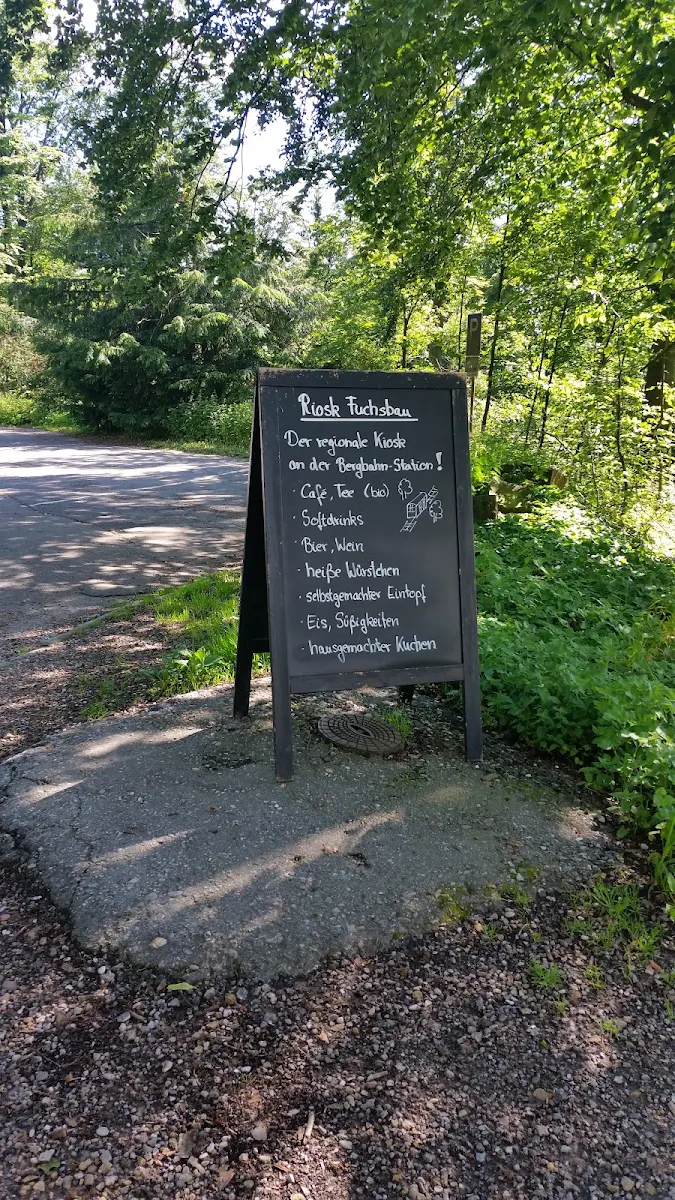 Kiosk Fuchsbau
Der regionale Kiosk
an der Bergbahn-Station!
· Café, Tee (bio)
· Softdrinks
· Bier, Wein
· heiße Würstchen
· selbstgemachter Eintopf
· Eis, Süßigkeiten
· hausgemachter Kuchen